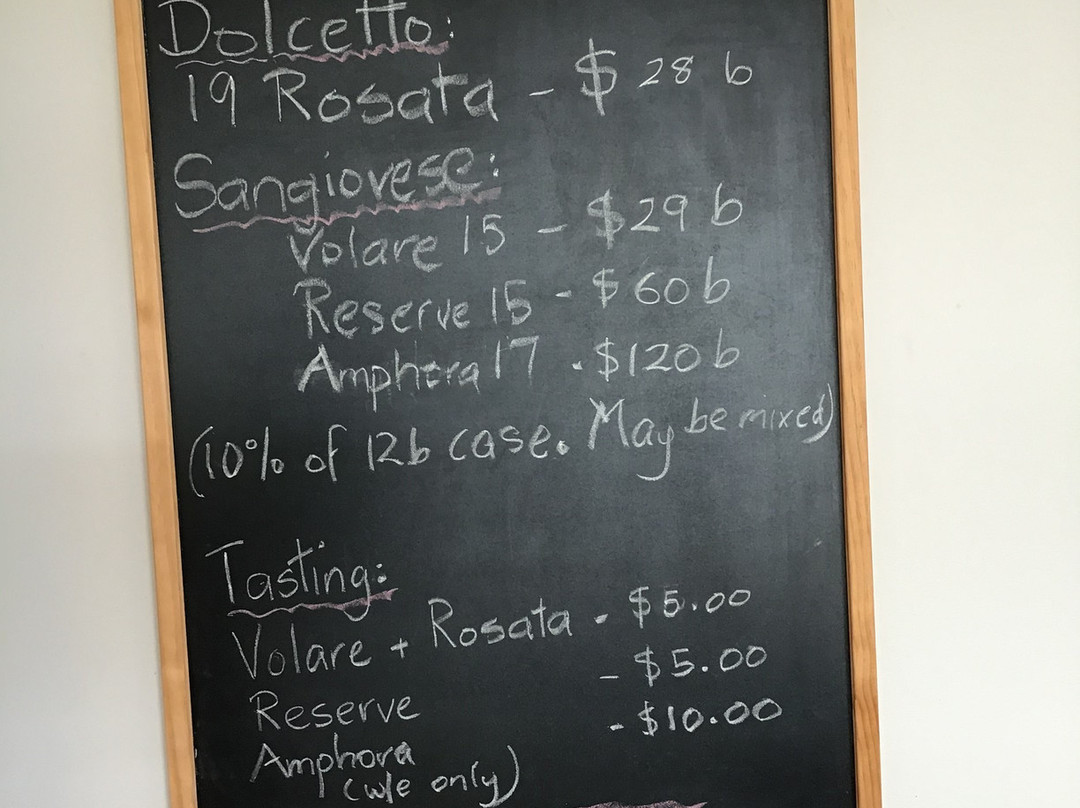 Dolcetto:
19 Rosata - $28 b
Sangiovese:
Volare 15 - $29 b
Reserve 15 - $60 b
Amphora 17 - $120 b
(10% of 12b case. May be mixed)
Tasting:
Volare + Rosata - $5.00
Reserve - $5.00
Amphora - $10.00
(w/e only)